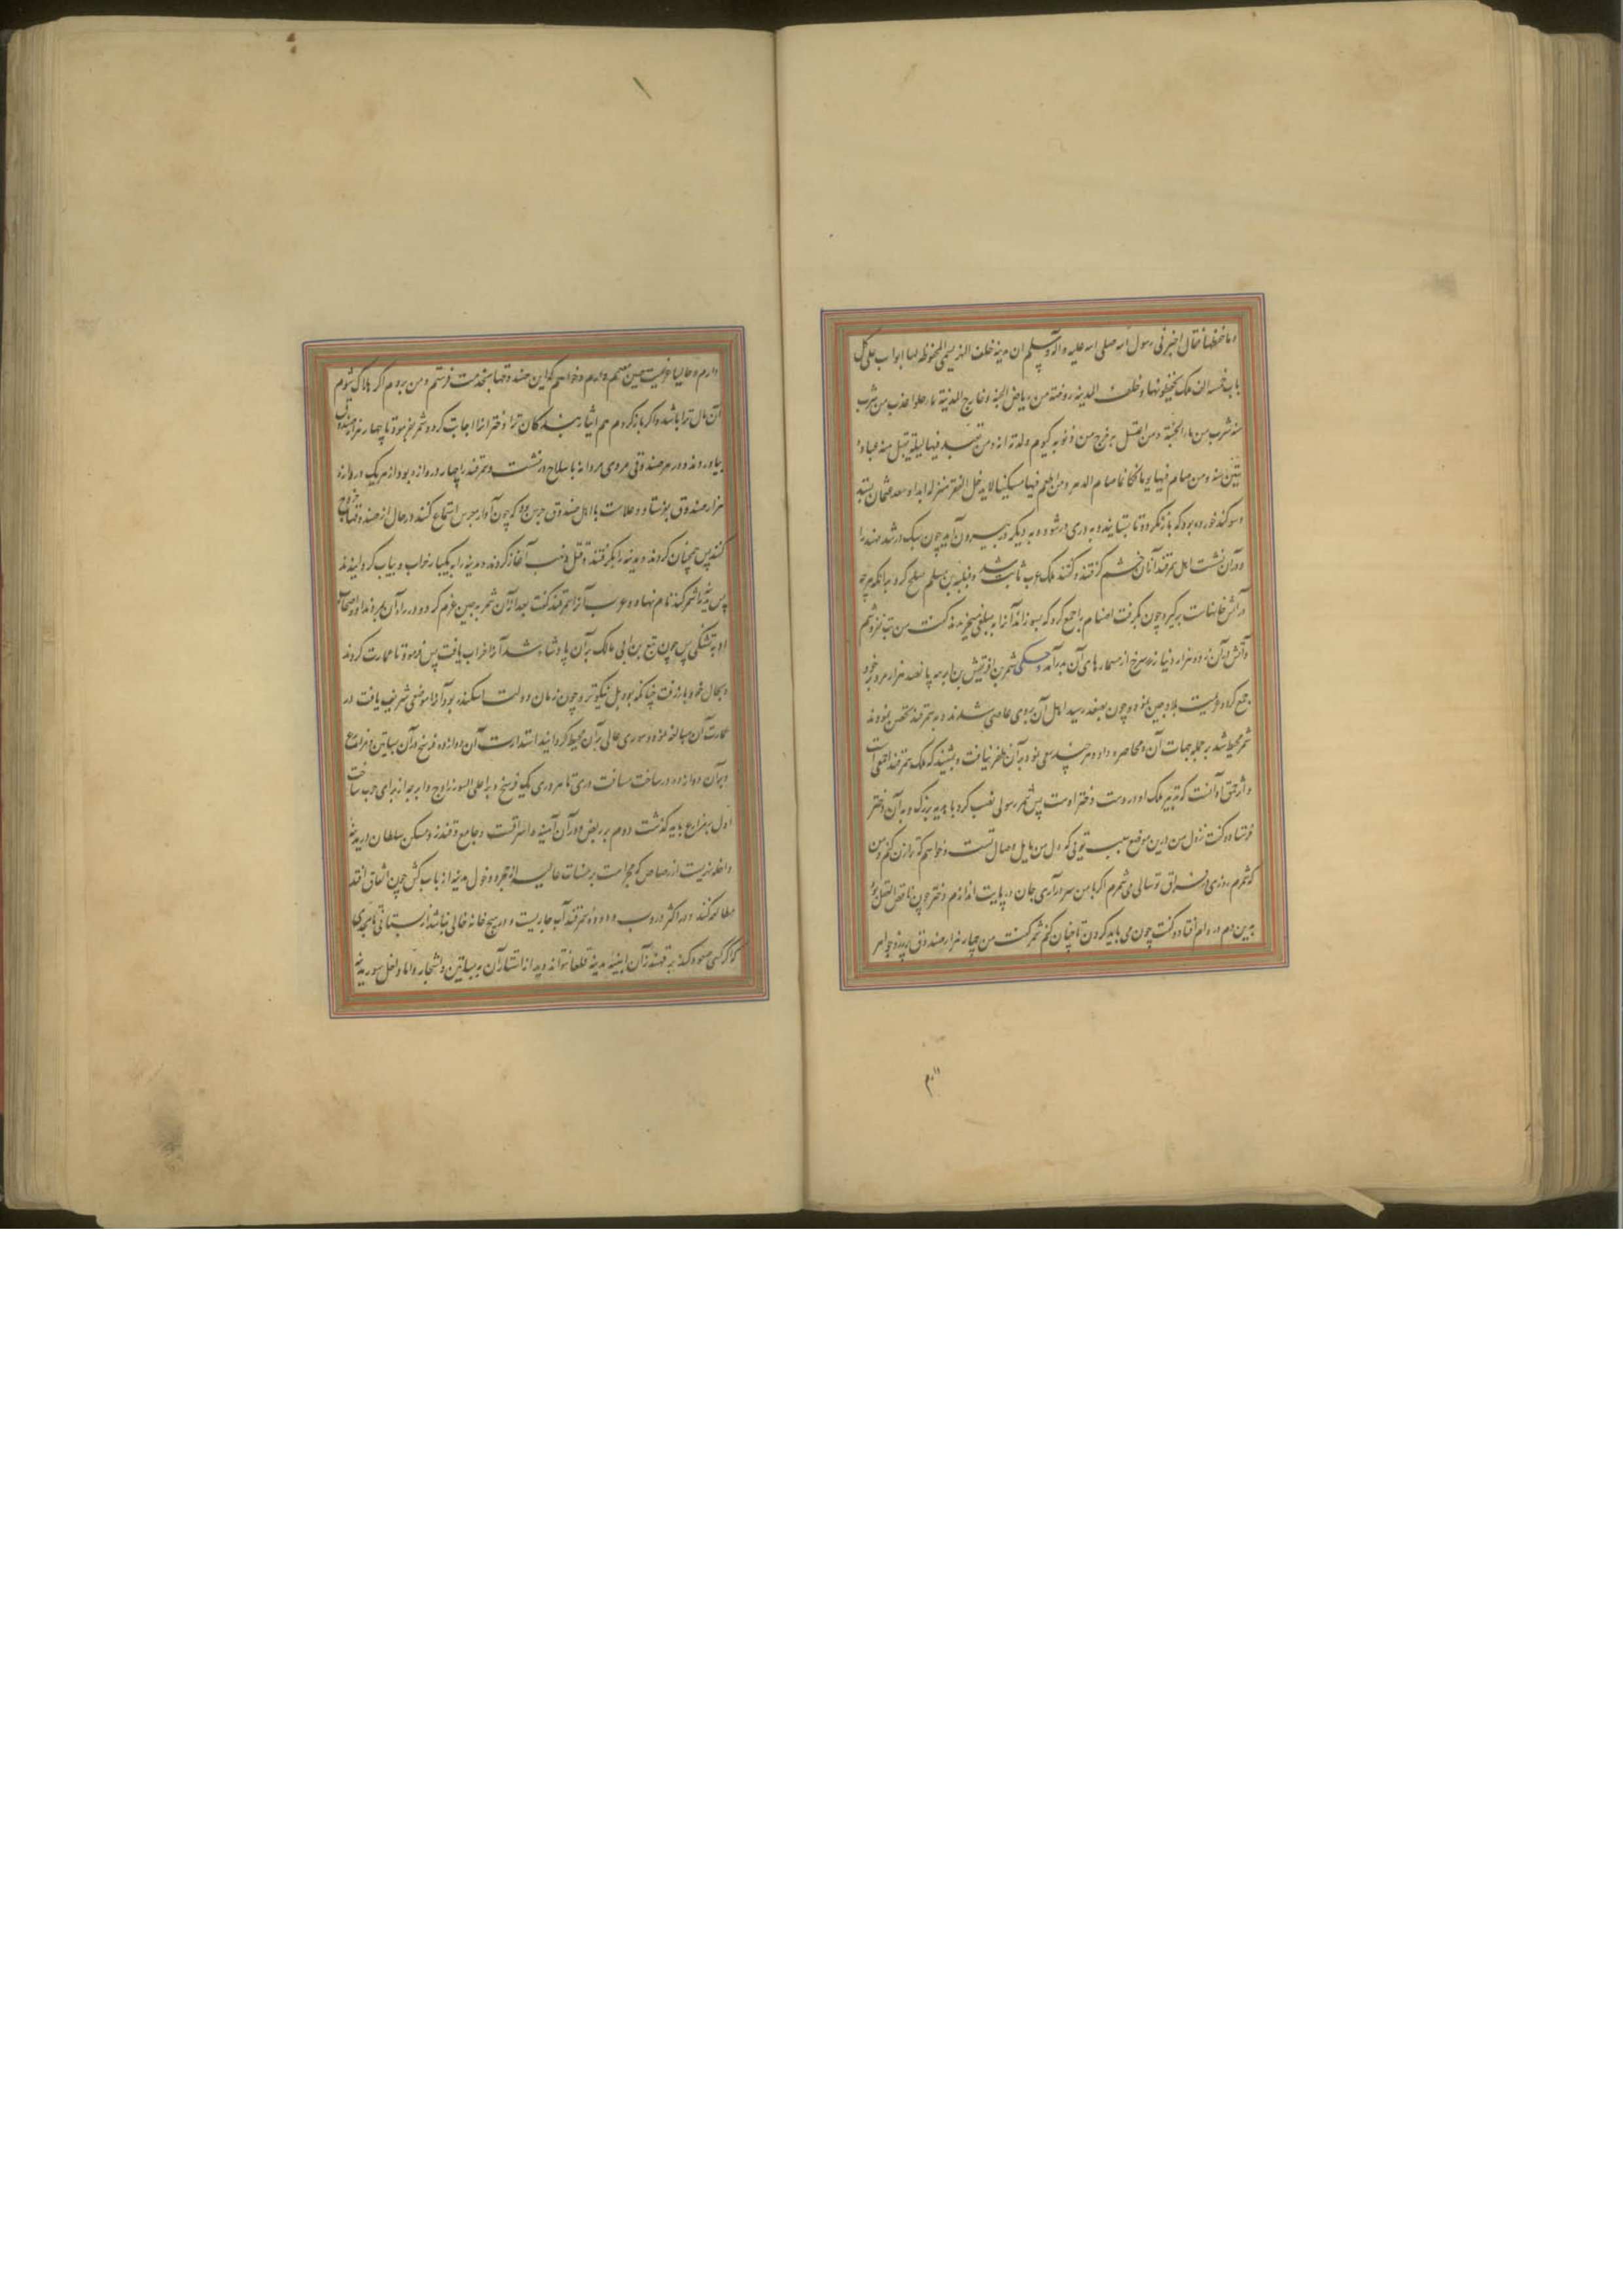 و ما حفظها فقال اخبرنی رسول الله صلی الله علیه و اله و سلم ان مدینه خلف النهر یسمی المحفوظه لها ابواب علی کل
باب خمسه الف ملک یحفظونها و خلف المدینه روضة من ریاض الجنة و خارج المدینة ماء حلو عذب من شرب
منه شرب من ماء الجنة و من اغتسل به خرج من ذنوبه کیوم ولدته امه و من تعبد فیها لیلة یقبل منه عبادة
ستین سنه و من صام فیها یوما فکانما صام الدهر و من اطعم فیها مسکینا لا یدخل الفقر منزله ابدا و سعد عثمان
و سوکند خورده بود که باز نکردد تا به دری در شود و به دیکر در بیرون آید چون سبک در شد
و در آن نشست اهل سمرقند آنان خشم کرفتند و کفتند ملک عرب ثابت شد و قتیبه بن مسلم صلح کرد بدانکه هر چه
در آتش خانهاست برکیرد و چون بکرفت اصنام را جمع کرد که بسوزاند آنرا به مبلغی میخریدند کفت من بت نفروشم
و آتش در آن زد و هزار دینار زر سرخ از مسمارهای آن بدر آمد و حکی شمر بن افریقیش بن ابرهه پانصد هزار مرد بر خود
جمع کرد و عزیمت بلاد چین نمود و چون بصغد رسید اهل آن بروی عاصی شدند و به سمرقند تحصن نمودند
شمر محیط شد بر جمله جهات آن و محاصره داد و هر چند سعی نمود بر آن ظفر نیافت و بشنید که ملک سمرقند احمق است
و از حمق او آنست که تدبیر ملک او در دست دختر اوست پس شمر رسولی نصب کرد با هدیه بزرک و به آن دختر
فرستاد و کفت نزول من درین موضع بسبب تویی که دل من مایل وصال تست و خواهم که ترا زن کنم و من
که شمرم روزی در فراق تو سالی می شمرم اکر با من سر در آری جان در پایت اندازم دختر چون ناقص العقل بود
بدین دم در دام افتاد و کفت چون می باید کردن تا چنان کنم شمر کفت من چهار هزار صندوق پر زر و جواهر
دارم و حالیا عزیمت چین مصمم دارم و خواهم که این صندوقها بخدمت فرستم و من بروم اکر هلاک شوم
آن مال ترا باشد و اکر باز کردم هم ایثار بندکان ترا دختر آنرا اجابت کرد و شمر بفرمود تا چهار هزار صندوق
بیاوردند و در هر صندوقی مردی مردانه با سلاح در نشست و سمرقند را چهار دروازه بود از هر یک دروازه
هزار صندوق بفرستاد و علامت با اهل صندوق جرس بود که چون آواز جرس استماع کنند در حال از صندوقها خروج
کنند پس همچنان کردند و مدینه را بکرفتند و قتل و نهب آغاز کردند و مدینه را به یکبار خراب و بیاب کردانیدند
پس مدینه را شمرکند نام نهاد و عرب آنرا سمرقند کفت بعد از آن شمر به چین عزم کرد و در راه آن بمردند او و اصحاب
او به تشنکی پس چون تبع بن ابی مالک بر آن پادشاه شد آنرا خراب یافت پس فرمود تا عمارت کردند
و بحال خود باز رفت چنانکه بود بل نیکوتر و چون زمان دولت اسکندر بود آنرا موضعی شریف یافت در
عمارت آن مبالغه نمود و سوری عالی بر آن محیط کردانید استدارت آن دوازده فرسخ در آن بساتین و مزارع
و بر آن دوازده در ساخت مسافت دری تا به دری یک فرسخ و به اعلی السور ازاوج و ابرجه از برای حرب ساخت
اول به مزارع باید کذشت دوم بر ربض و در آن ابنیه و اسواقست و جامع و قهندز و مسکن سلطان در مدینه
داخله نهریست از رصاص که مجرا است بر مسنات عالیه از حجر و دخول مدینه از باب کش چون اتفاق افتد
مطالعه کنند و در اکثر دروب و دور سمرقند آب جاریست و در هیچ خانه خالی نباشد از بستانی تا بحدی
که اکر کسی صعود کند بر قهندز آن ابنیه مدینه قطعا نتواند دید از استتار آن به بساتین و اشجار و اما داخل سور مدینه